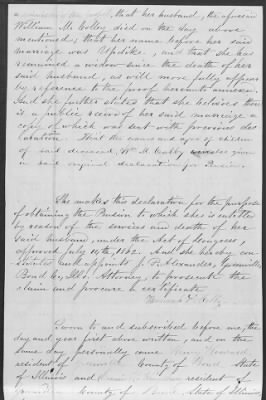 that her husband, the aforesaid
William M. Colby died on the day above
mentioned; that her name before her said
marriage was Updike, and that she has
remained a widow since the death of her
said husband, as will more fully appear
by reference to the proof hereunto annexed.
And she further states that she believes there
is a public record of her said marriage a
copy of which was sent with previous dec
laration. That the names and ages of children
of said deceased, Wm M. Colby given
in said original declaration for Pension.
She makes the declaration for the purpose
of obtaining the Pension to which she is entitled
by reason of the services and death of her
said husband, under the Act of Congress,
approved July 14th, 1862. And she hereby con
stitutes and appoints J. F. Alexander, Greenville,
Bond Co, Ills. Attorney, to prosecute the
claim and procure a certificate.
Hannah Colby
Sworn to and subscribed before me, the
day and year first above written; and on the
same day personally came
resident of County of Bond State
of Illinois and resident of
County of Bond, State of Illinois,